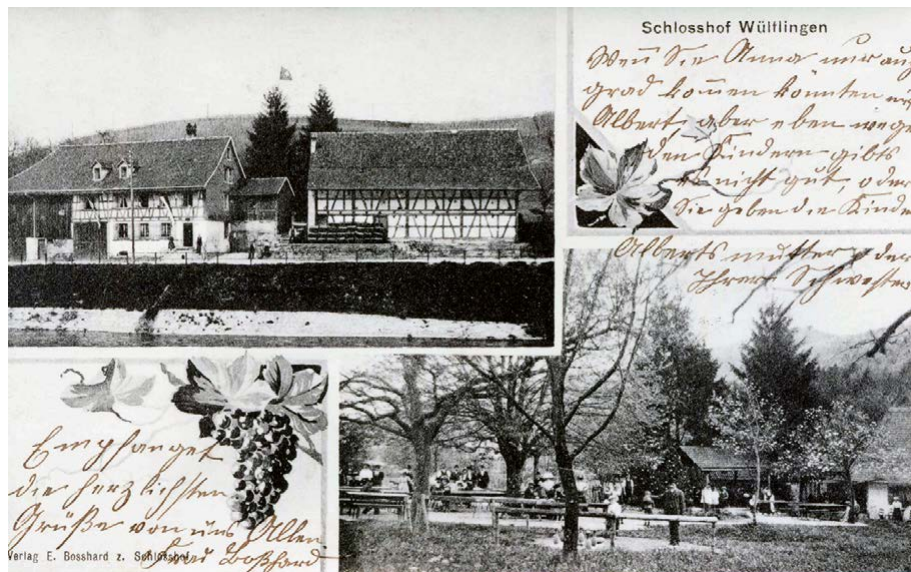 Schlosshof Wülflingen
Wen̄ Sie Anna nur auf
grad kom̄en könnten mit
Albert, aber eben wege
den Kindern gibts
es nicht gut, oder
Sie geben die Kinder
Alberts mutter oder
Ihrer Schwester
Empfanget
die herzlichsten
Grüße von uns Allen
Frau Boßhard
Verlag E. Bosshard z. Schlosshof